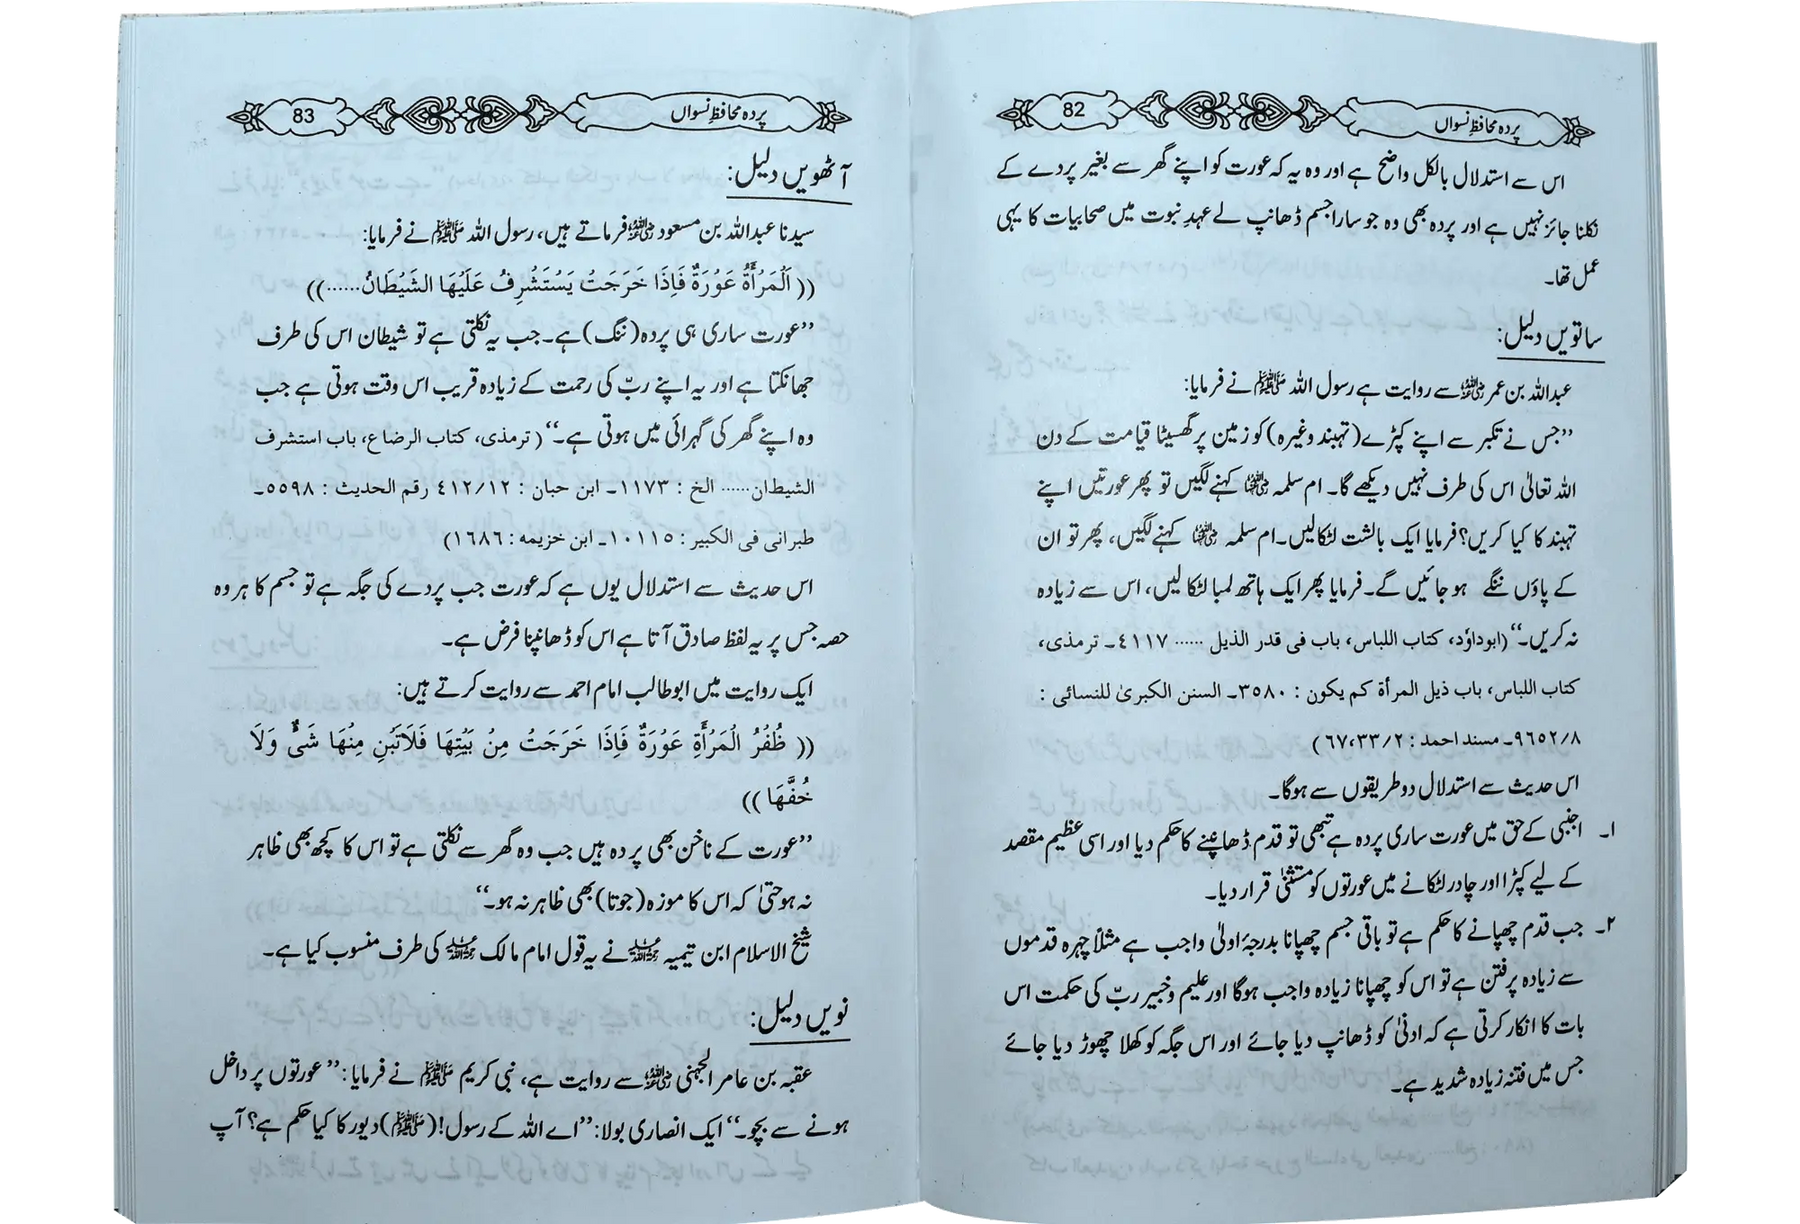 82 پردہ محافظِ نسواں
اس سے استدلال بالکل واضح ہے اور وہ یہ کہ عورت کو اپنے گھر سے بغیر پردے کے
نکلنا جائز نہیں ہے اور پردہ بھی وہ جو سارا جسم ڈھانپ لے عہدِ نبوت میں صحابیات کا یہی
عمل تھا۔
ساتویں دلیل:
عبداللہ بن عمر رضی اللہ عنہ سے روایت ہے رسول اللہ ﷺ نے فرمایا:
’’جس نے تکبر سے اپنے کپڑے (تہبند وغیرہ) کو زمین پر گھسیٹا قیامت کے دن
اللہ تعالیٰ اس کی طرف نہیں دیکھے گا۔ ام سلمہ رضی اللہ عنہا کہنے لگیں تو پھر عورتیں اپنے
تہبند کا کیا کریں؟ فرمایا ایک بالشت لٹکا لیں۔ ام سلمہ رضی اللہ عنہا کہنے لگیں، پھر تو ان
کے پاؤں ننگے ہو جائیں گے۔ فرمایا پھر ایک ہاتھ لمبا لٹکا لیں، اس سے زیادہ
نہ کریں۔‘‘ (ابوداؤد، کتاب اللباس، باب فی قدر الذیل ...... ٤١١٧۔ ترمذی،
کتاب اللباس، باب ذیل المرأة کم یکون : ٣٥٨٠۔ السنن الکبریٰ للنسائی :
٩٦٥٢/٨۔ مسند احمد : ٦٧،٣٣/٢)
اس حدیث سے استدلال دو طریقوں سے ہوگا۔
۱۔ اجنبی کے حق میں عورت ساری پردہ ہے تبھی تو قدم ڈھانپنے کا حکم دیا اور اسی عظیم مقصد
کے لیے کپڑا اور چادر لٹکانے میں عورتوں کو مستثنیٰ قرار دیا۔
۲۔ جب قدم چھپانے کا حکم ہے تو باقی جسم چھپانا بدرجۂ اولیٰ واجب ہے مثلاً چہرہ قدموں
سے زیادہ پرفتن ہے تو اس کو چھپانا زیادہ واجب ہوگا اور علیم وخبیر ربّ کی حکمت اس
بات کا انکار کرتی ہے کہ ادنیٰ کو ڈھانپ دیا جائے اور اس جگہ کو کھلا چھوڑ دیا جائے
جس میں فتنہ زیادہ شدید ہے۔
83 پردہ محافظِ نسواں
آٹھویں دلیل:
سیدنا عبداللہ بن مسعود رضی اللہ عنہ فرماتے ہیں، رسول اللہ ﷺ نے فرمایا:
(( اَلْمَرْأَةُ عَوْرَةٌ فَاِذَا خَرَجَتْ يَسْتَشْرِفُ عَلَيْهَا الشَّيْطَانُ......))
’’عورت ساری ہی پردہ (ننگ) ہے۔ جب یہ نکلتی ہے تو شیطان اس کی طرف
جھانکتا ہے اور یہ اپنے ربّ کی رحمت کے زیادہ قریب اس وقت ہوتی ہے جب
وہ اپنے گھر کی گہرائی میں ہوتی ہے۔‘‘ (ترمذی، کتاب الرضاع، باب استشرف
الشیطان...... الخ : ١١٧٣۔ ابن حبان : ٤١٢/١٢ رقم الحدیث : ٥٥٩٨۔
طبرانی فی الکبیر : ١٠١١٥۔ ابن خزیمه : ١٦٨٦)
اس حدیث سے استدلال یوں ہے کہ عورت جب پردے کی جگہ ہے تو جسم کا ہر وہ
حصہ جس پر یہ لفظ صادق آتا ہے اس کو ڈھانپنا فرض ہے۔
ایک روایت میں ابوطالب امام احمد سے روایت کرتے ہیں:
(( ظُفْرُ الْمَرْأَةِ عَوْرَةٌ فَاِذَا خَرَجَتْ مِنْ بَيْتِهَا فَلَا تَبِنْ مِنْهَا شَیْءٌ وَلَا
خُفَّهَا ))
’’عورت کے ناخن بھی پردہ ہیں جب وہ گھر سے نکلتی ہے تو اس کا کچھ بھی ظاہر
نہ ہو حتیٰ کہ اس کا موزہ (جوتا) بھی ظاہر نہ ہو۔‘‘
شیخ الاسلام ابن تیمیہ رحمہ اللہ نے یہ قول امام مالک رحمہ اللہ کی طرف منسوب کیا ہے۔
نویں دلیل:
عقبہ بن عامر الجہنی رضی اللہ عنہ سے روایت ہے، نبی کریم ﷺ نے فرمایا: ’’عورتوں پر داخل
ہونے سے بچو۔‘‘ ایک انصاری بولا: ’’اے اللہ کے رسول! (ﷺ) دیور کا کیا حکم ہے؟ آپ